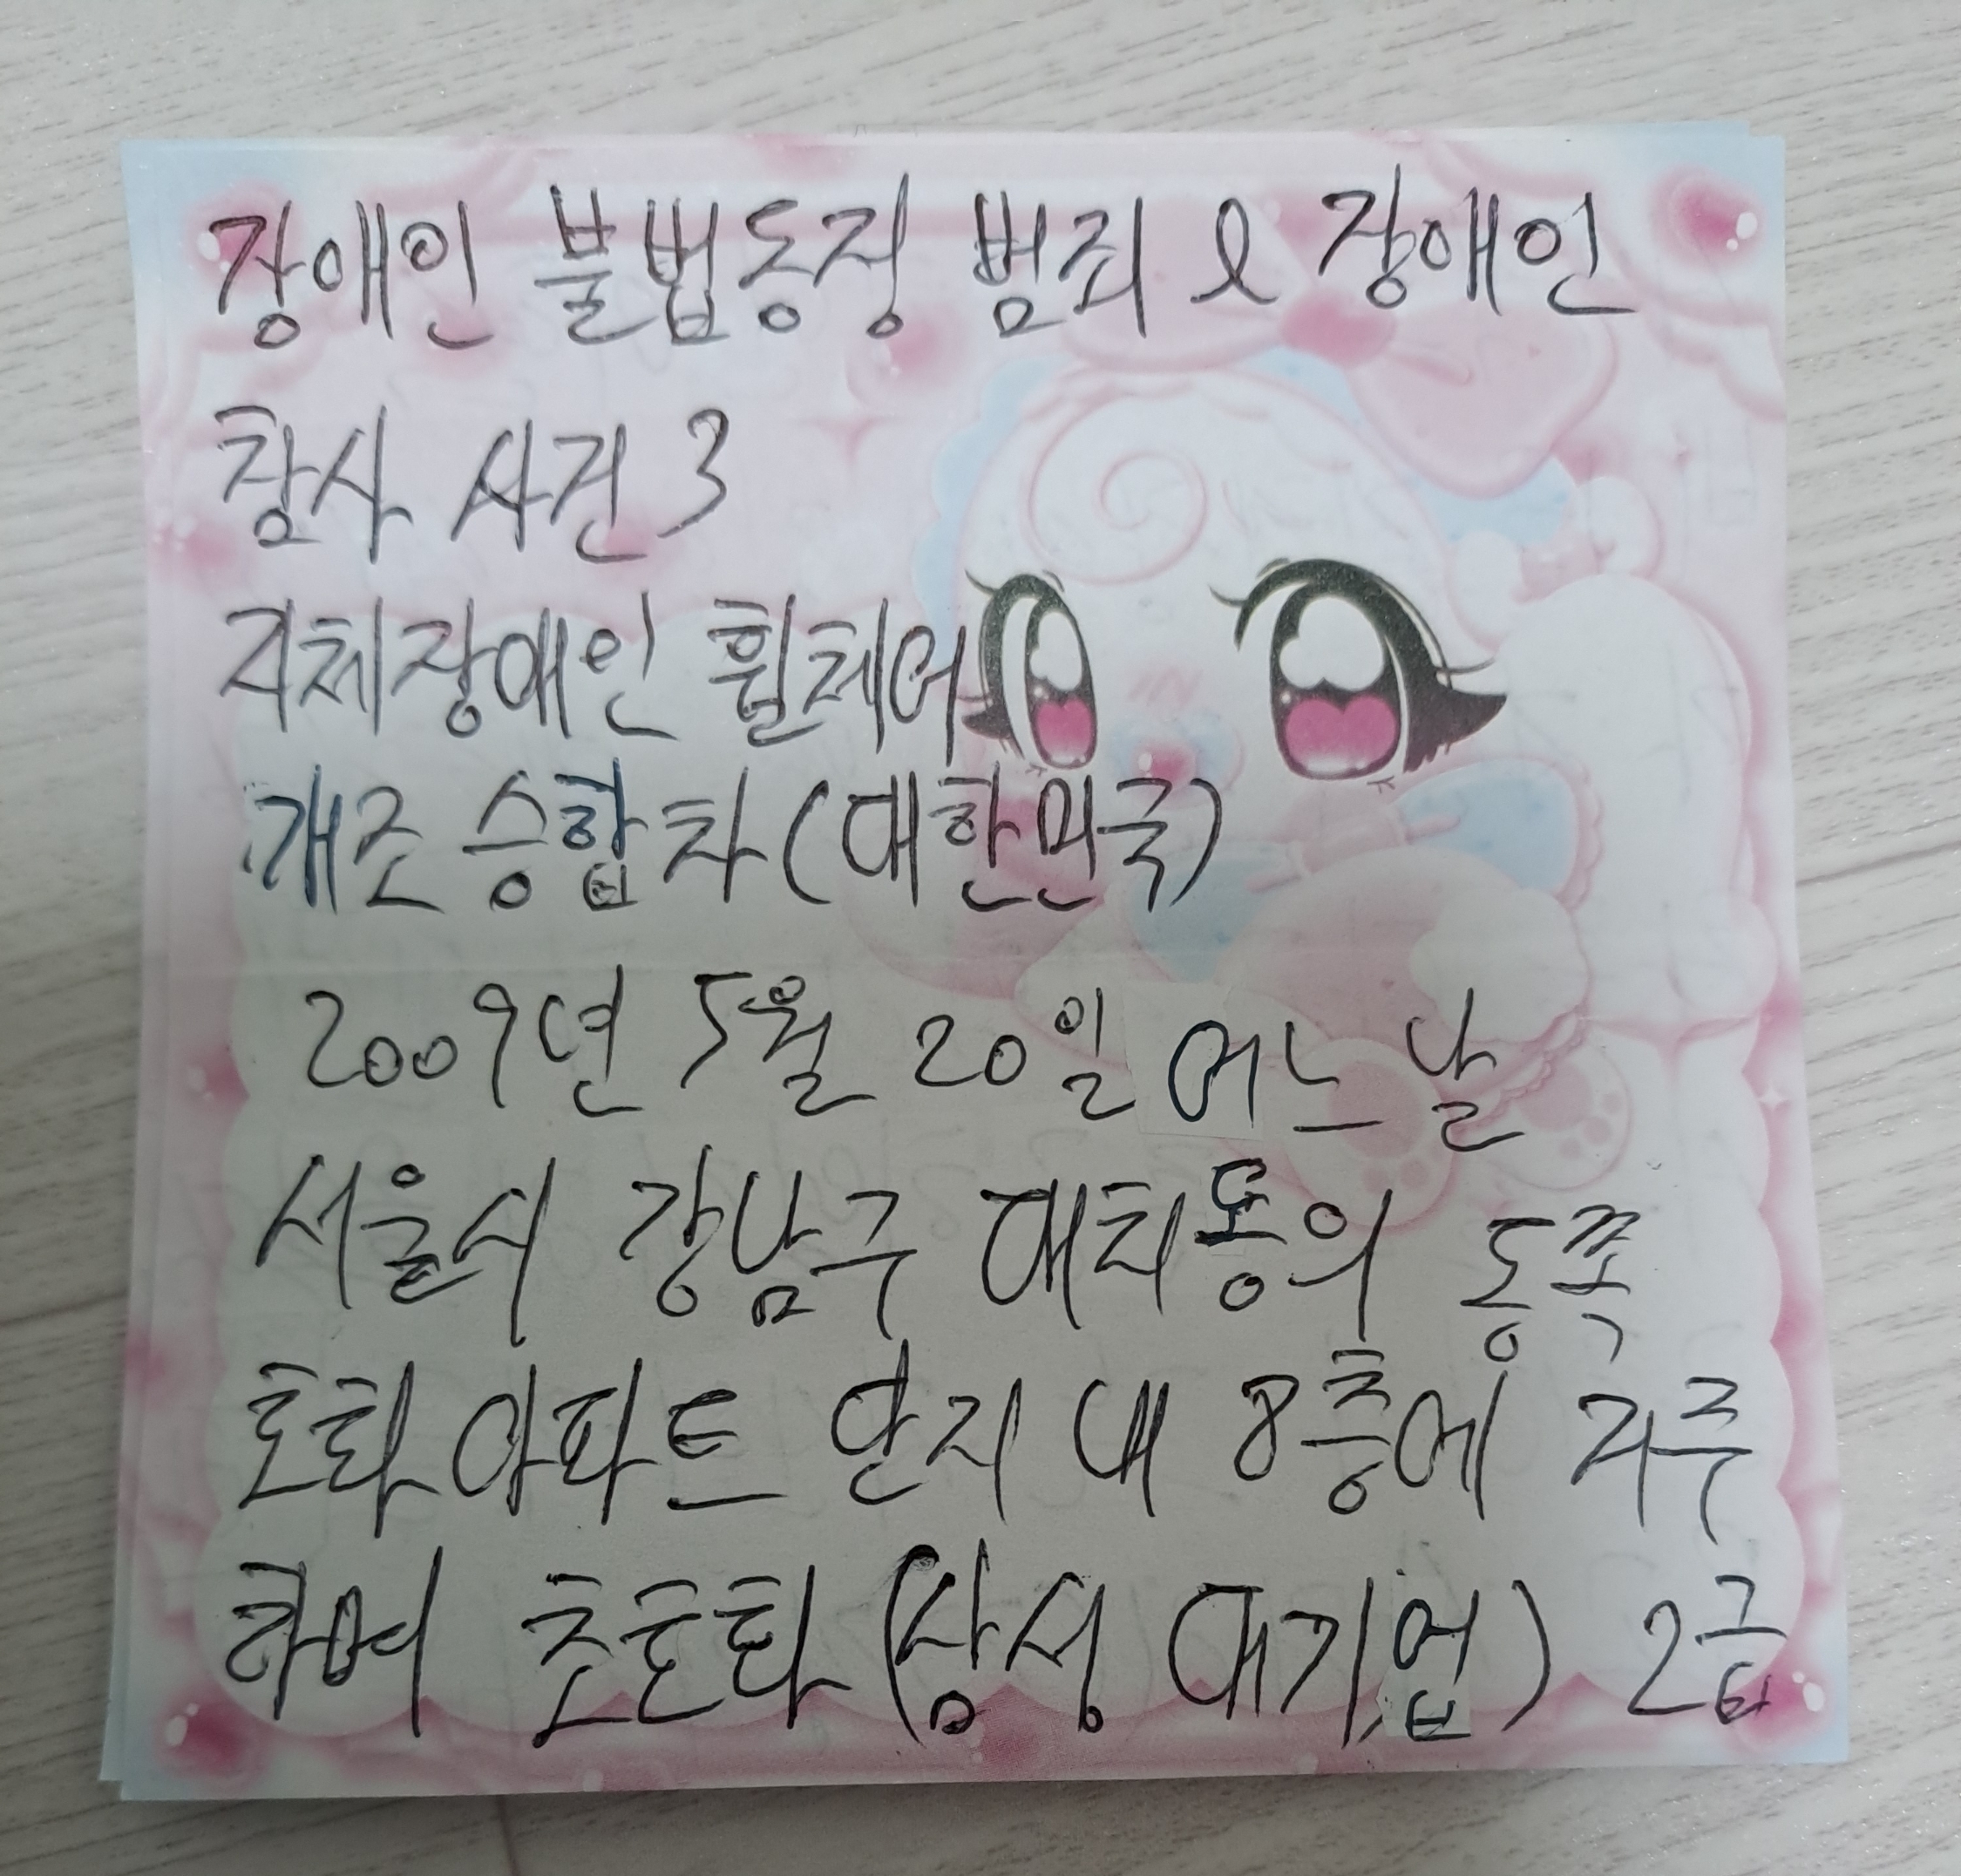 장애인 불법동정 범죄 & 장애인
참사 사건 3
지체장애인 휠체어
개조 승합차 (대한민국)
2009년 5월 20일 어느 날
서울시 강남구 대치동의 동쪽
토화아파트 단지 내 8층에 거주
하며 초토화 (삼성 대기업) 2급